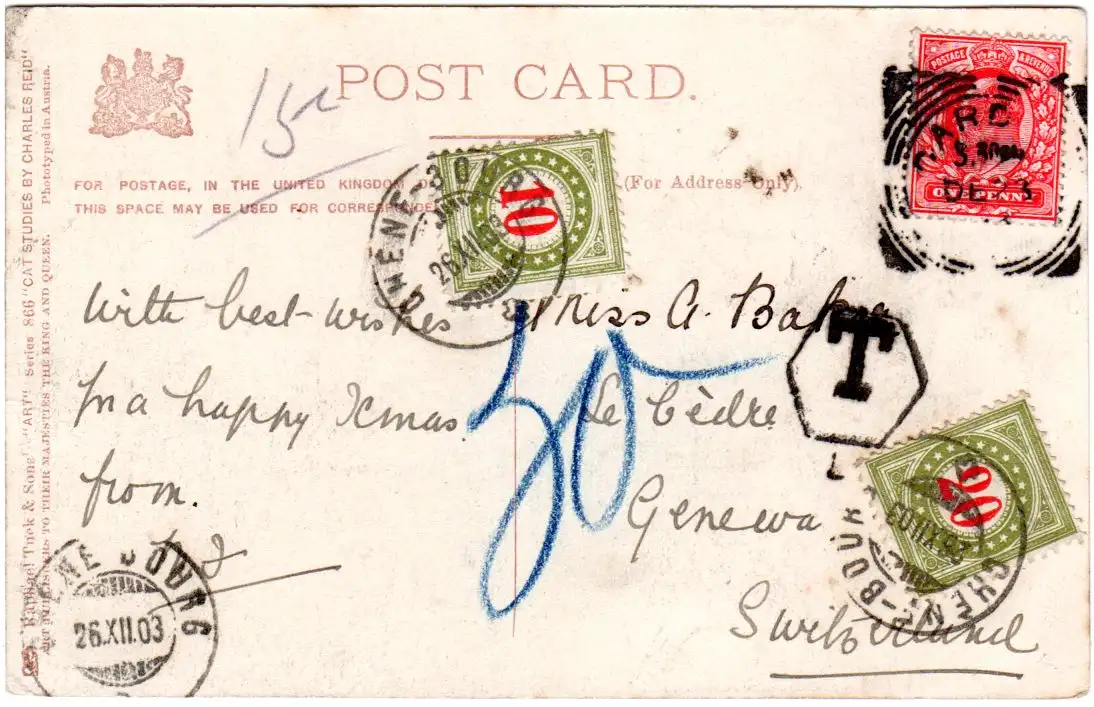 POST CARD.
15
FOR POSTAGE, IN THE UNITED KINGDOM (For Address Only).
THIS SPACE MAY BE USED FOR
POSTAGE & REVENUE
DE 23
ONE PENNY
10
CHÊNE-BOURG
26.XII.03
With best wishes
for a happy Xmas.
from.
Miss A. Baker
Le Cèdre
Geneva
Switzerland
30
T
L
20
CHÊNE-BOURG
26.XII.03
CHÊNE-BOURG
26.XII.03
Raphael Tuck & Sons' "ART" Series 866 "CAT STUDIES BY CHARLES REID"
ART PUBLISHERS TO THEIR MAJESTIES THE KING AND QUEEN. Phototyped in Austria.